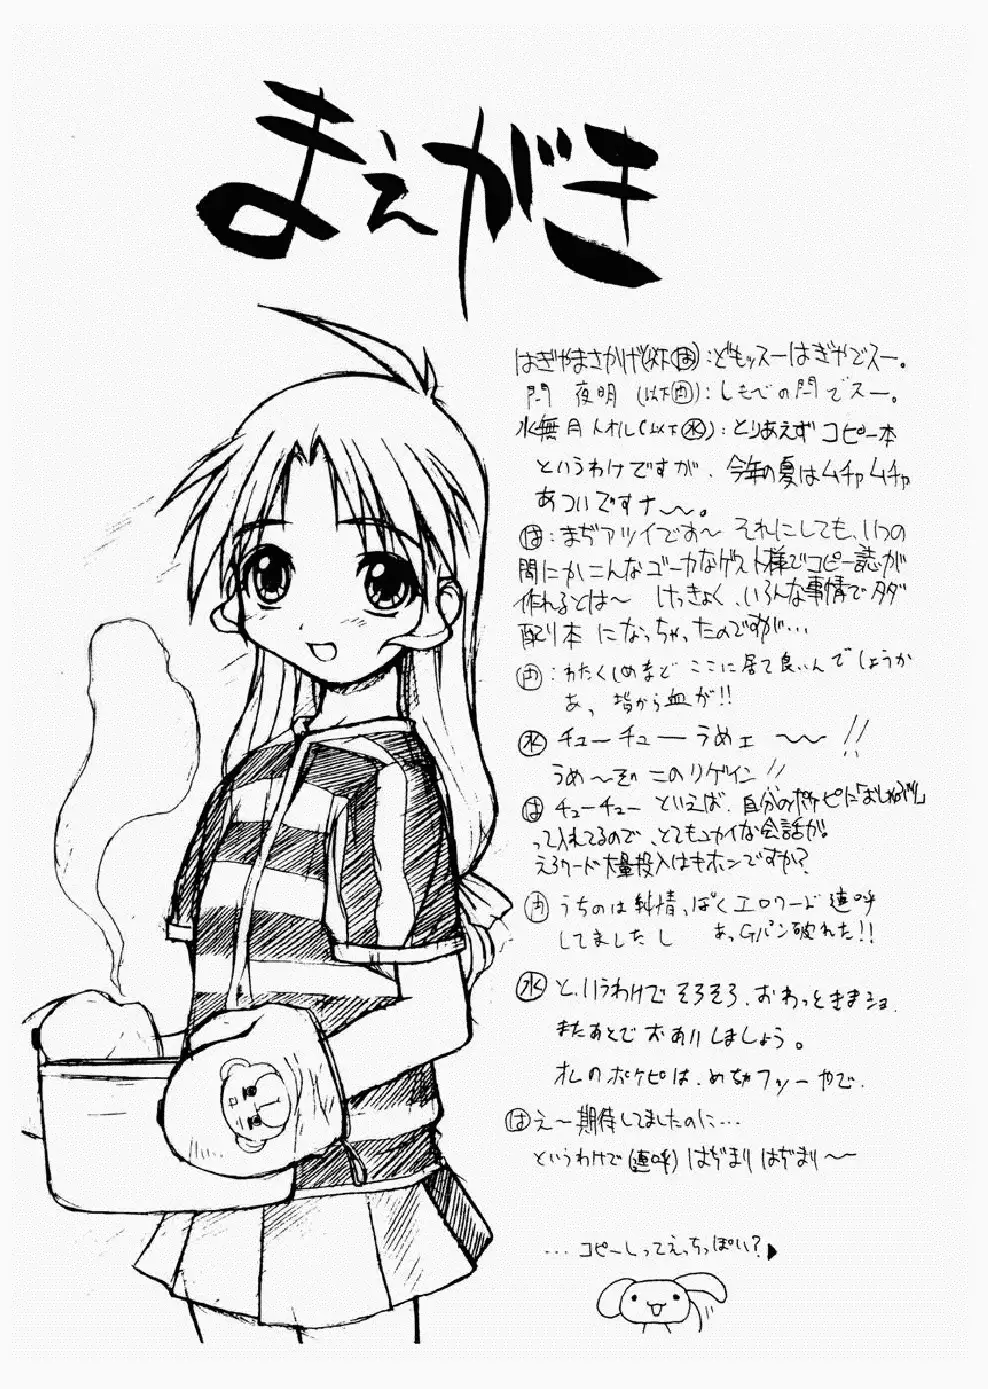 まえがき
はぎやまさかげ(以下は):どもッスーはぎやでスー。
閂 夜明 (以下円):しもべの閂でスー。
水無月トオル(以下水):とりあえずコピー本
というわけですが、今年の夏はムチャムチャ
あついですナ〜〜。
は:まぢアツイでお〜 それにしても、いつの
間にかこんなゴーカなゲスト様でコピー誌が
作れるとは〜 けっきょく、いろんな事情でタダ
配り本 になっちゃったのですが…
円:わたくしめまど ここに居て良いんでしょうか
あっ 指から血が!!
水 チューチューうめェ 〜〜 !!
うめ〜ぞ このリゲイン!!
は チューチュー といえば、自分のポケピに
って入れてるので、とてもユカイな会話が。
えろワード大量投入はキホンですか?
円 うちのは純情っぽくエロワード連呼
してましたし あっGパン破れた!!
水 と、いうわけでそろそろ、おわっときまショ.
またあとでお会いしましょう。
オレのポケピは、めちゃフツーやで.
は え〜期待してましたのに…
というわけで(連呼) はぢまり はぢまり〜〜
…コピーしってえっちっぽい?